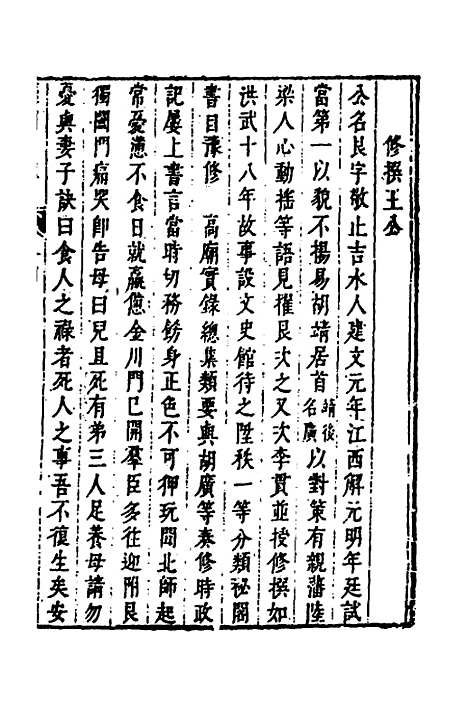 修撰王公
公名艮字敬止吉水人建文元年江西解元明年廷試
當第一以貌不揚易胡靖居首靖後名廣以對策有親藩陸
梁人心動搖等語見擢艮次之又次李貫並授修撰如
洪武十八年故事設文史館待之陞秩一等分類祕閣
書目豫修 高廟實錄總集類要與胡廣等纂修時政
記屢上書言當時切務飭身正色不可狎玩聞北師起
常憂懣不食日就羸憊金川門已開羣臣多往迎附艮
獨闔門痛哭卽告母曰兒且死有弟三人足養母請勿
憂與妻子訣曰食人之祿者死人之事吾不復生矣安